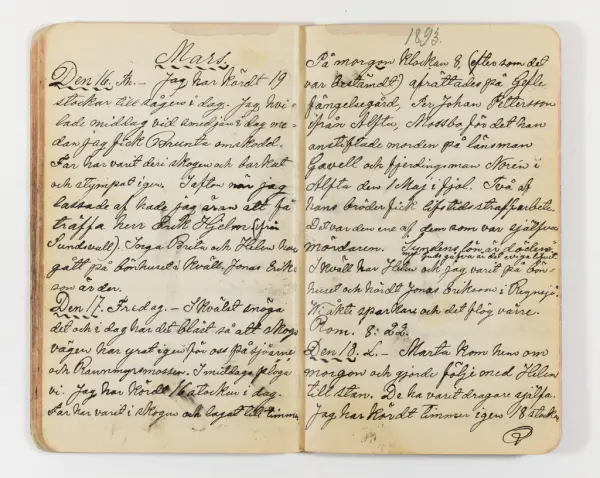 Mars.
Den 16. Th. – Jag har kördt 19
stockar till sågen i dag. Jag hvi-
lade middag vid smedjan i dag me-
dan jag fick Brunta omskodd.
Far har varit deri skogen och barkat
och stympat igen. I afton när jag
lassade af hade jag äran att få
träffa herr Erik Hjelm (från
Sundsvall). Inga Brita och Helen har
gått på bönhuset i kväll. Jonas Erik-
son är der.
Den 17. Fredag. – I kvälst snöga
det och i dag har det blåst så att skogs
vägen har yrat igen för oss på sjöarne
och Ranningsmossen. I middags ploga
vi. Jag har kördt 16 stockar i dag.
Far har varit i skogen och lagat till timmer
1893.
På morgon klockan 8, (efter som det
var bestämdt) afrättades på Gefle
fängelsegård, Per Johan Pettersson
ifrån Alfta, Mossbo, för det han
anstiftade morden på länsman
Gavell och fjerdingsman Norén i
Alfta den 1 Maj i fjol. Två af
hans bröder fick lifstids straffarbete.
Det var den ene af dem som var själfva
mördaren. Syndens lön är döden
men Guds gåfva är det eviga lifvet
I kväll har Helen och jag varit på bön-
huset och hördt Jonas Erikson i Regnsjö.
Vi åkte sparkare och det flög värre.
Rom. 8: 22.
Den 18. L. – Marta kom hem om
morgon och gjorde följe med Helen
till stan. De ha varit dragare själfa.
Jag har kördt timmer igen 18 stockar